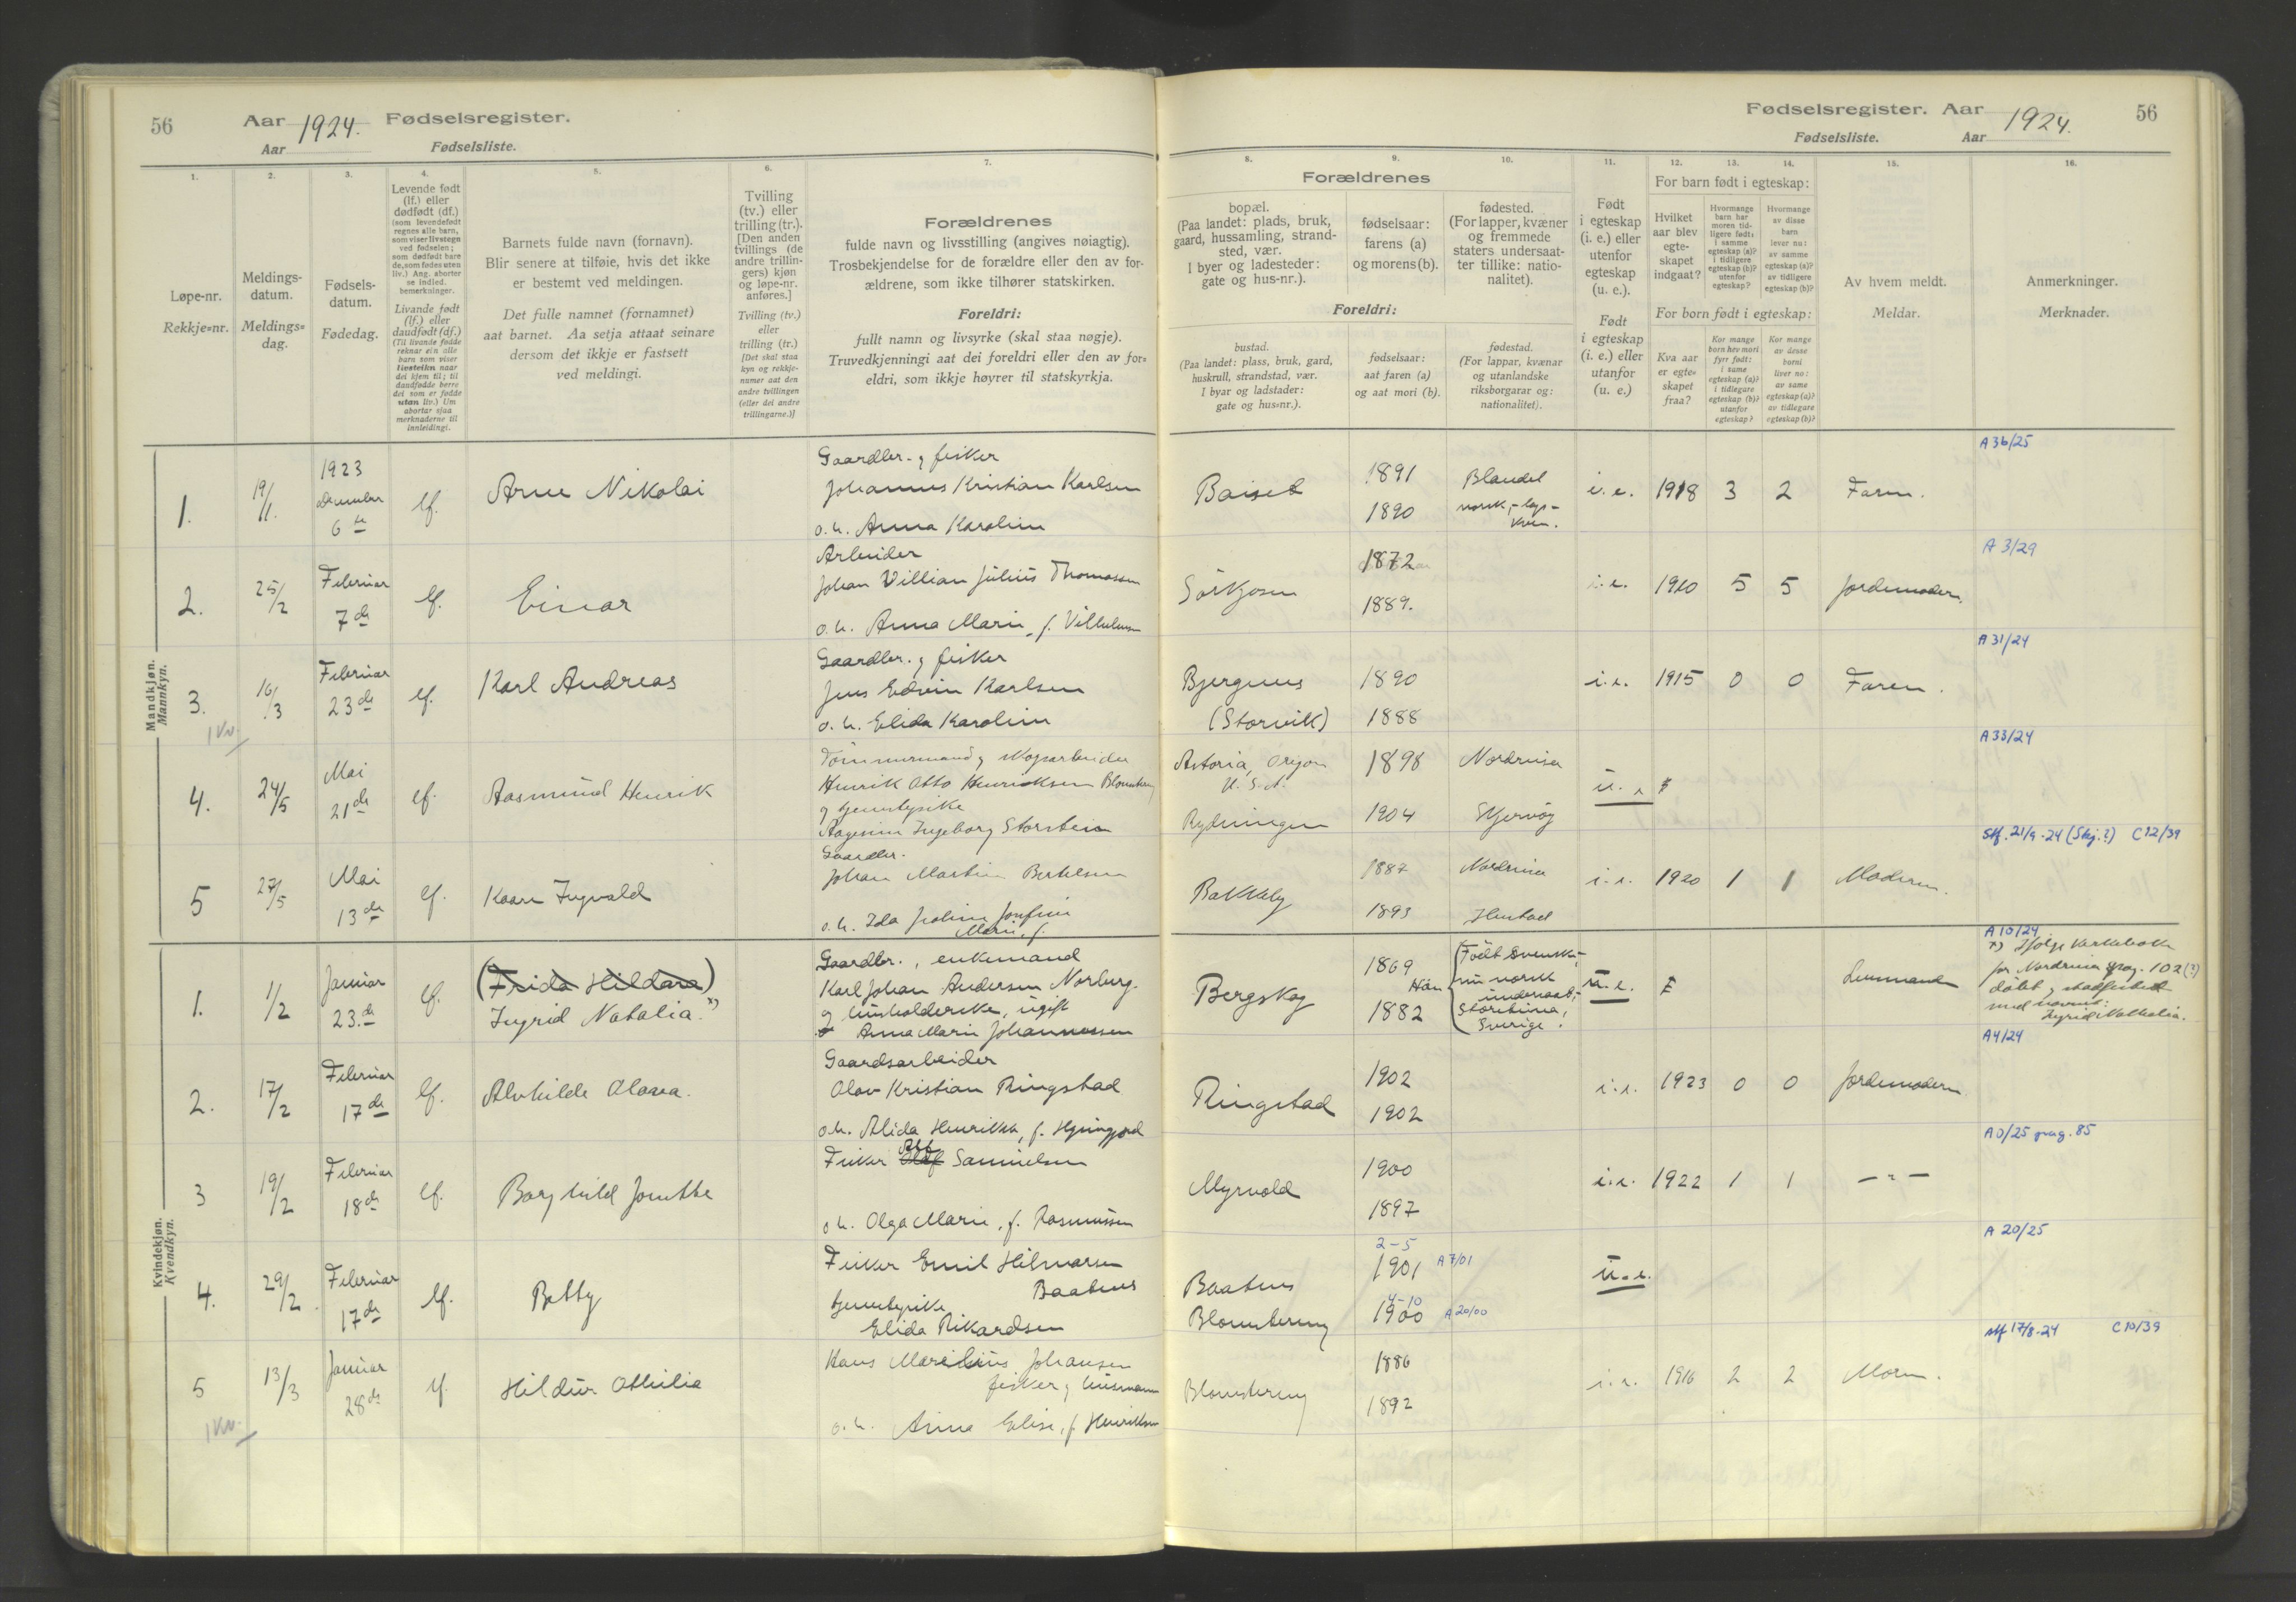 56
Aar 1924. Fødselsregister.
Aar
Fødselsliste.
1.
2.
3.
4.
5.
6.
7.
Løpe-nr.
Rekkje=nr.
Meldings-
datum.
Meldings=
dag.
Fødsels-
datum.
Fødedag.
Levende født
(lf.) eller
dødfødt (df.)
(som levendefødt
regnes alle barn,
som viser livstegn
ved fødselen;
som dødfødt bare
de, som fødes uten
liv.) Ang. aborter
se indled.
bemerkninger.
Livande født
(lf.) eller
daudfødt (df.)
(Til livande fødde
reknar ein alle
barn som viser
livsteikn naar
dei kjem til; til
daudfødde berre
dei som er fødde
utan liv.) Um
abortar sjaa
merknaderne til
innleidingi.
Barnets fulde navn (fornavn).
Blir senere at tilføie, hvis det ikke
er bestemt ved meldingen.
Det fulle namnet (fornamnet)
aat barnet. Aa setja attaat seinare
dersom det ikkje er fastsett
ved meldingi.
Tvilling
(tv.) eller
trilling (tr.).
[Den anden
tvillings (de
andre trillin-
gers) kjøn
og løpe-nr.
anføres.]
Tvilling (tv.)
eller
trilling (tr.)
[Det skal staa
kyn og rekkje-
numer aat den
andre tvillingen
(eller dei andre
trillingarne.)]
Forældrenes
fulde navn og livsstilling (angives nøiagtig).
Trosbekjendelse for de forældre eller den av for-
ældrene, som ikke tilhører statskirken.
Foreldri:
fullt namn og livsyrke (skal staa nøgje).
Truvedkjenningi aat dei foreldri eller den av for=
eldri, som ikkje høyrer til statskyrkja.
Mandkjøn.
Mannkyn.
1.
19/1.
1923
December
6te
lf.
Arne Nikolai
Gaardbr. og fisker
Johannes Kristian Karlsen
o. h. Anna Karoline
2.
25/2
Februar
7de
lf.
Einar
Arbeider
Johan Villian Julius Thomassen
o. h. Anna Marie, f. Vilhelmsen
3.
16/3
Februar
23de
lf.
Karl Andreas
Gaardbr. og fisker
Jens Edvin Karlsen
o. h. Elida Karoline
1 Kv.
4.
24/5
Mai
21de
lf.
Aasmund Henrik
Tømmermand og skogsarbeider
Henrik Otto Henriksen
og tjenestepike
Ingeborg Storstein
5
27/5
Mai
13de
lf.
Kaare Ingvald
Gaardbr.
Johan Martin Bertelsen
o. h. Ida
Marie, f.
Kvindekjøn.
Kvendkyn.
1.
1/2
Januar
23.de
lf.
(Frida Hildara)
Ingrid Natalia. x)
Gaardbr., enkemand
Karl Johan Andersen Norberg.
og husholderske, ugift
Anna Marie Johannessen
2.
17/2
Februar
17de
lf.
Alvhilde Olava.
Gaardsarbeider
Olav Kristian Ringstad
o. h. Alida Henrikka, f.
3
19/2
Februar
18de
lf.
Borghild Jonette
Fisker Olaf Samuelsen
o h. Olga Marie, f. Rasmussen
4.
29/2.
Februar
17de
lf.
Betty
Fisker Emil Hilmarsen
Baatnes
tjenestepike
Elida Rikardsen
5
13/3
Januar
28de
lf.
Hildur Othilie
Hans Marelius Johansen
fisker og husmann
o. h. Anna Elise, f. Henriksen
1 Kv.
Fødselsregister. Aar 1924. 56
Fødselsliste. Aar
8.
9.
10.
11.
12.
13.
14.
15.
16.
Forældrenes
bopæl.
(Paa landet: plads, bruk,
gaard, hussamling, strand-
sted, vær.
I byer og ladesteder:
gate og hus-nr.).
fødselsaar:
farens (a)
og morens (b).
fødested.
(For lapper, kvæner
og fremmede
staters undersaat-
ter tillike: natio-
nalitet).
Foreldri:
bustad.
(Paa landet: plass, bruk, gard,
huskrull, strandstad, vær.
I byar og ladstader:
gate og hus=nr.).
fødselsaar:
aat faren (a)
og aat mori (b).
fødestad.
(For lappar, kvænar
og utanlandske
riksborgarar og:
nationalitet).
Født
i egteskap
(i. e.) eller
utenfor
egteskap
(u. e.).
Født
i egteskap
(i. e.) eller
utanfor
(u. e.)
For barn født i egteskap:
Hvilket
aar blev
egte-
skapet
indgaat?
Hvormange
barn har
moren tid-
ligere født:
i samme
egteskap (a)?
i tidligere
egteskap (b)?
utenfor
egteskap?
Hvormange
av disse
barn
lever nu:
av samme
egteskap (a)?
av tidligere
egteskap (b)?
For born født i egteskap:
Kva aar
er egte=
skapet
fraa?
Kor mange
born hev mori
fyrr født:
i same
egteskap (a)?
i tidlegare
egteskap (b)?
utanfor
egteskap?
Kor mange
av desse
borni
liver no:
av same
egteskap (a)?
av tidlegare
egteskap (b)?
Av hvem meldt.
Meldar.
Anmerkninger.
Merknader.
A 36/25
Baiset
1891
1890
Blandet
norsk,-lap-
kven.
i. e.
1918
3
2
Faren.
A 3/29
Sørkjosen
1872
1889.
i. e.
1910
5
5
Jordemoderen.
A 31/24
Bjergnes
(Storvik)
1890
1888
i. e.
1915
0
0
Faren.
A 33/24
Astoria, Oregon
U. S. A.
1898
Nordreisa
u. e
Rydningen
1904
Skjervøy
Stf. 21/9-24 (Skj.?) C 12/39
Bakkeby
1887
Nordreisa
1893
Hustad
i. e.
1920
1
1
Moderen.
A 10/24
Bergskog
1869
1882
Han
Født svensk,-
nu norsk
undersaat,-
Sverige.
u. e.
Lensmand
x) Ifølge kirkeboken
for Nordreisa pag. 102 (?)
døbt og stadfæstet
med navnet:
Ingrid Nathalia.
A 4/24
Ringstad
1902
1902
i. e.
1923
0
0
Jordemoderen
A 0/25 pag. 85
Myrvold
1900
1897
i. e.
1922
1
1
— " —
A 20/25
Baatnes
2-5
1901 A 7/01
u. e.
Blomstereng
4-10
1900 A 20/00
stf 17/8-24 C 10/39
Blomstereng
1886
1892
i. e.
1916
2
2
Moren.